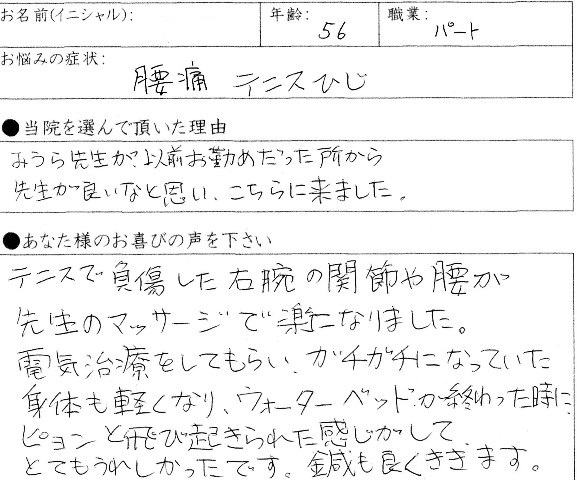 お名前(イニシャル): 年齢: 56 職業: パート
お悩みの症状: 腰痛 テニスひじ
●当院を選んで頂いた理由
みうら先生が、以前お勤めだった所から
先生が良いなと思い、こちらに来ました。
●あなた様のお喜びの声を下さい
テニスで負傷した右腕の関節や腰が
先生のマッサージで楽になりました。
電気治療をしてもらい、ガチガチになっていた
身体も軽くなり、ウォーターベッドが終わった時に、
ピョンと飛び起きられた感じがして、
とてもうれしかったです。鍼も良くききます。